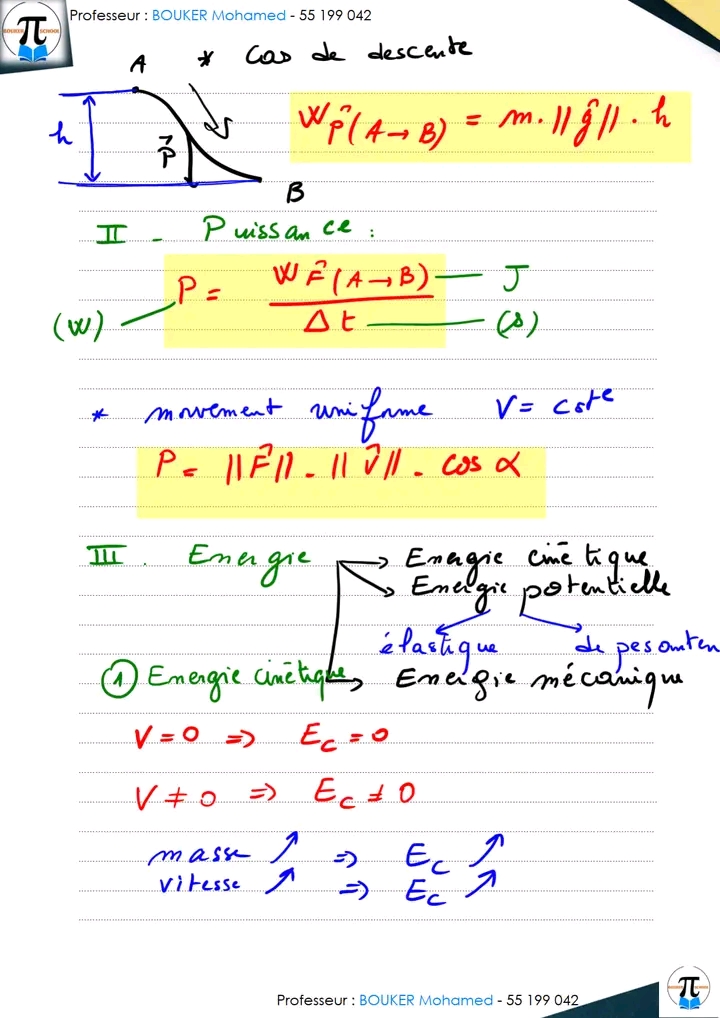 Professeur : BOUKER Mohamed - 55 199 042
π
BOUKER SCHOOL
A * Cas de descente
h P⃗ W P⃗ (A → B) = m . ||g⃗|| . h
B
II - Puissance :
P = W F⃗ (A → B) / Δt
J
(W) (s)
* mouvement uniforme V = cste
P = ||F⃗|| . ||V⃗|| . cos α
III . Energie → Energie cinétique
→ Energie potentielle
élastique de pesanten
① Energie cinétique → Energie mécanique
V = 0 => Ec = 0
V ≠ 0 => Ec ≠ 0
masse ↗ => Ec ↗
vitesse ↗ => Ec ↗
Professeur : BOUKER Mohamed - 55 199 042
π